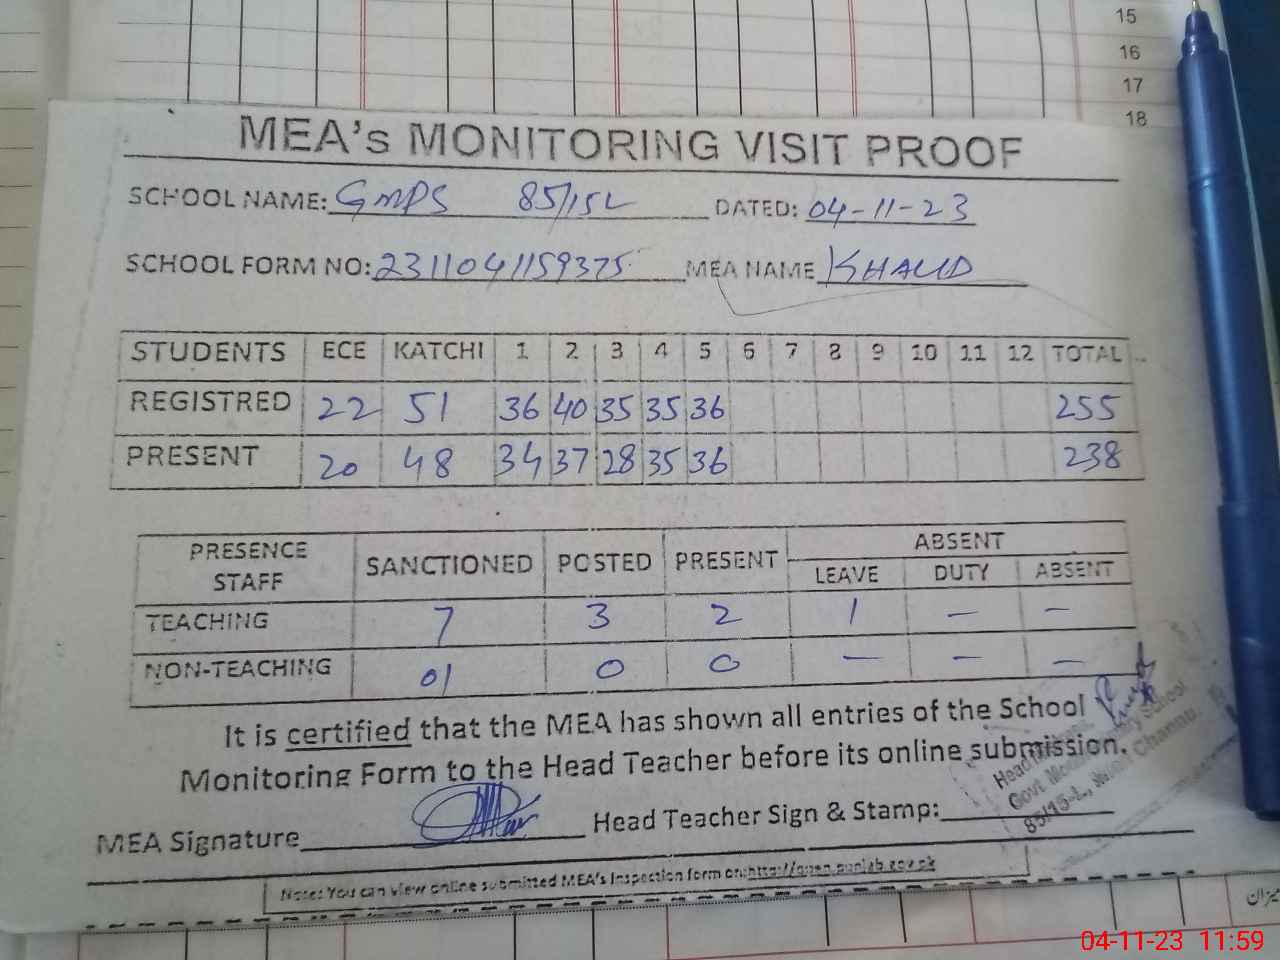 15
16
17
18
MEA's MONITORING VISIT PROOF
SCHOOL NAME: GMPS 85/15L DATED: 04-11-23
SCHOOL FORM NO: 2311041159375 MEA NAME KHALID
STUDENTS ECE KATCHI 1 2 3 4 5 6 7 8 9 10 11 12 TOTAL
REGISTRED 22 51 36 40 35 35 36 255
PRESENT 20 48 34 37 28 35 36 238
PRESENCE STAFF SANCTIONED POSTED PRESENT ABSENT
LEAVE DUTY ABSENT
TEACHING 7 3 2 1 — —
NON-TEACHING 01 0 0 — — —
It is certified that the MEA has shown all entries of the School
Monitoring Form to the Head Teacher before its online submission.
MEA Signature Head Teacher Sign & Stamp:
Head
Govt School
85/15-L, Channu
Note: You can view online submitted MEA's Inspection form on:http://open.punjab.gov.pk
میزان
04-11-23 11:59